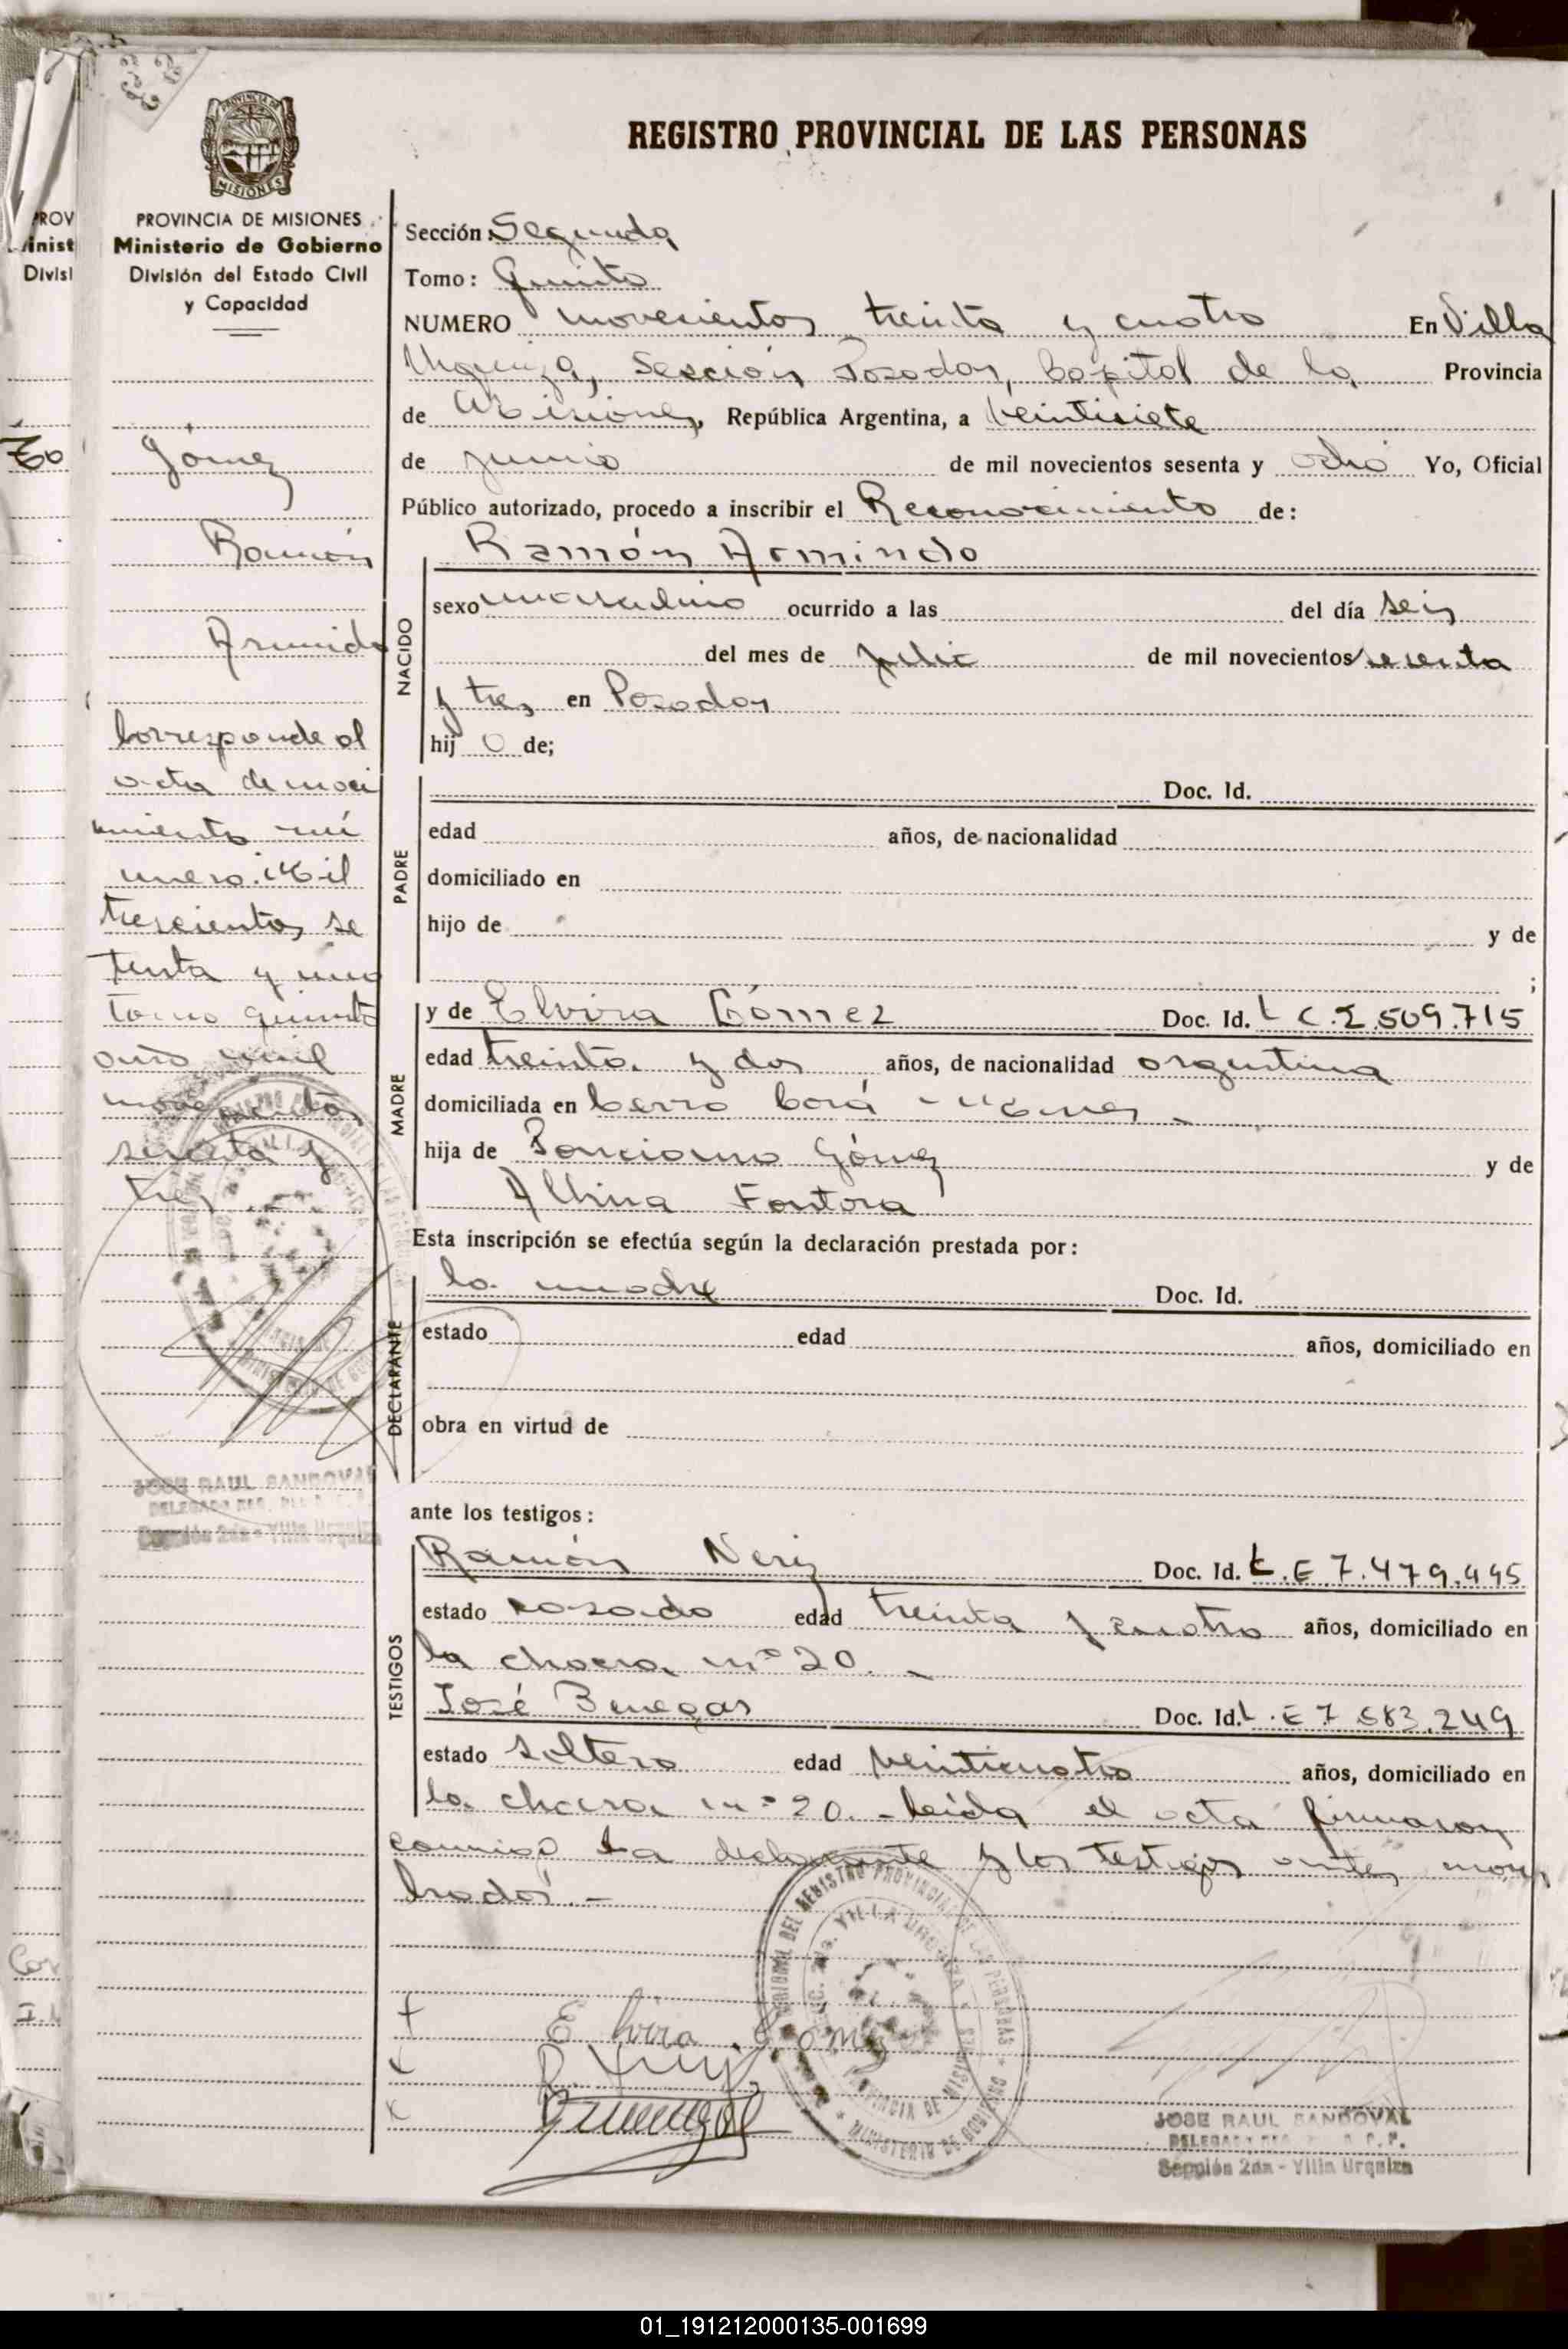 REGISTRO PROVINCIAL DE LAS PERSONAS
PROVINCIA DE
MISIONES
PROVINCIA DE MISIONES
Ministerio de Gobierno
División del Estado Civil
y Capacidad
Gómez
Ramón
Armindo
Corresponde al
acta de naci
miento nú
mero Mil
trescientos se
tenta y uno
tomo quinto
año mil
novecientos
sesenta y
tres
JOSE RAUL SANDOVAL
Sección 2da - Villa Urquiza
Sección: Segunda
Tomo: Quinto
NUMERO novecientos treinta y cuatro En Villa
Urquiza, Sección Posadas, Capital de la Provincia
de Misiones, República Argentina, a veintisiete
de junio de mil novecientos sesenta y ocho Yo, Oficial
Público autorizado, procedo a inscribir el Reconocimiento de:
Ramón Armindo
NACIDO
sexo masculino ocurrido a las del día seis
del mes de julio de mil novecientos sesenta
y tres en Posadas
hijo de;
PADRE
Doc. Id.
edad años, de nacionalidad
domiciliado en
hijo de y de
;
MADRE
y de Elvira Gómez Doc. Id. L C. 2.509.715
edad treinta y dos años, de nacionalidad argentina
domiciliada en Cerro Corá - Misiones -
hija de Ponciano Gómez y de
Albina Fontora
Esta inscripción se efectúa según la declaración prestada por:
DECLARANTE
la madre Doc. Id.
estado edad años, domiciliado en
obra en virtud de
ante los testigos:
TESTIGOS
Ramón Neriz Doc. Id. L.E 7.479.445
estado casado edad treinta y cuatro años, domiciliado en
la chacra nº 20. -
José Benegas Doc. Id. L.E 7.583.249
estado soltero edad veinticuatro años, domiciliado en
la chacra nº 20. - Leída el acta firmaron
conmigo la declarante y los testigos antes nom
brados. -
Elvira Gomez
DEL REGISTRO PROVINCIAL DE LAS PERSONAS
VILLA URQUIZA
PROVINCIA DE MISIONES
MINISTERIO DE GOBIERNO
JOSE RAUL SANDOVAL
Sección 2da - Villa Urquiza
01_191212000135-001699